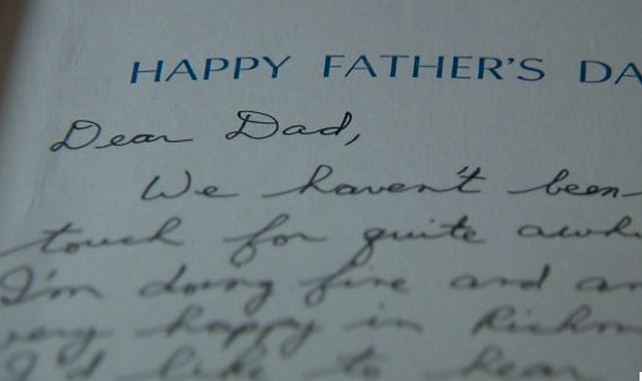 HAPPY FATHER'S DA
Dear Dad,
We haven't been
touch for quite awh
I'm doing fine and am
very happy in Richm
I'd like to hear